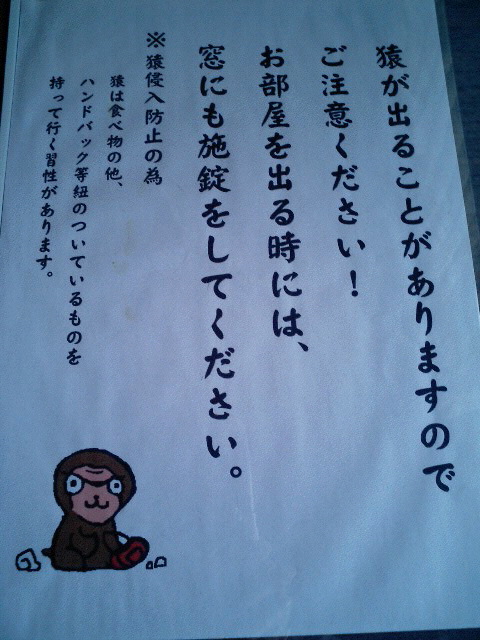 猿が出ることがありますので
ご注意ください！
お部屋を出る時には、
窓にも施錠をしてください。
※猿侵入防止の為
猿は食べ物の他、
ハンドバック等紐のついているものを
持って行く習性があります。